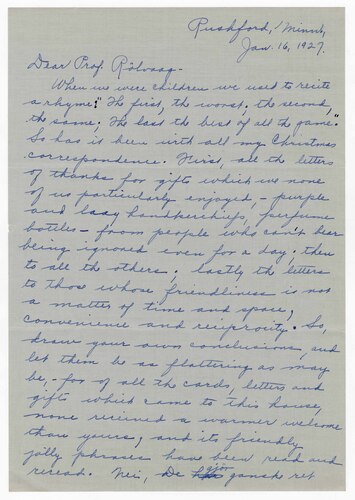 Rushford, Minn.,
Jan. 16, 1927.
Dear Prof. Rölvaag -
When we were children we used to recite
a rhyme: "The first, the worst, the second,
the same, the last the best of all the game."
So has it been with all my Christmas
correspondence. First, all the letters
of thanks for gifts which we none
of us particularly enjoyed, - purple
and lacy handkerchiefs, perfume
bottles - from people who can't bear
being ignored even for a day; then
to all the others; lastly the letters
to those whose friendliness is not
a matter of time and space,
convenience and reciprocity. So,
draw your own conclusions, and
let them be as flattering as may
be, - for of all the cards, letters and
gifts which came to this house,
none recieved a warmer welcome
than yours, and its friendly
jolly phrases have been read and
reread. Nei, De gansk ret